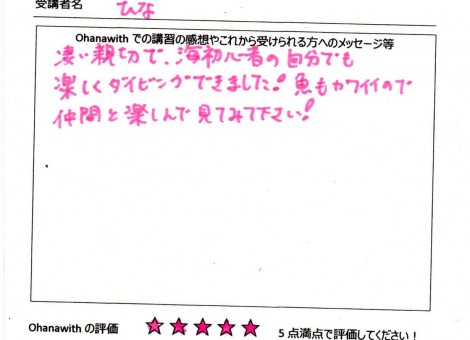 受講者名 ひな
Ohanawith での講習の感想やこれから受けられる方へのメッセージ等
凄い親切で、海初心者の自分でも
楽しくダイビングできました!魚もカワイイので
仲間と楽しんで見てみて下さい!
Ohanawith の評価 ★★★★★ 5 点満点で評価してください!